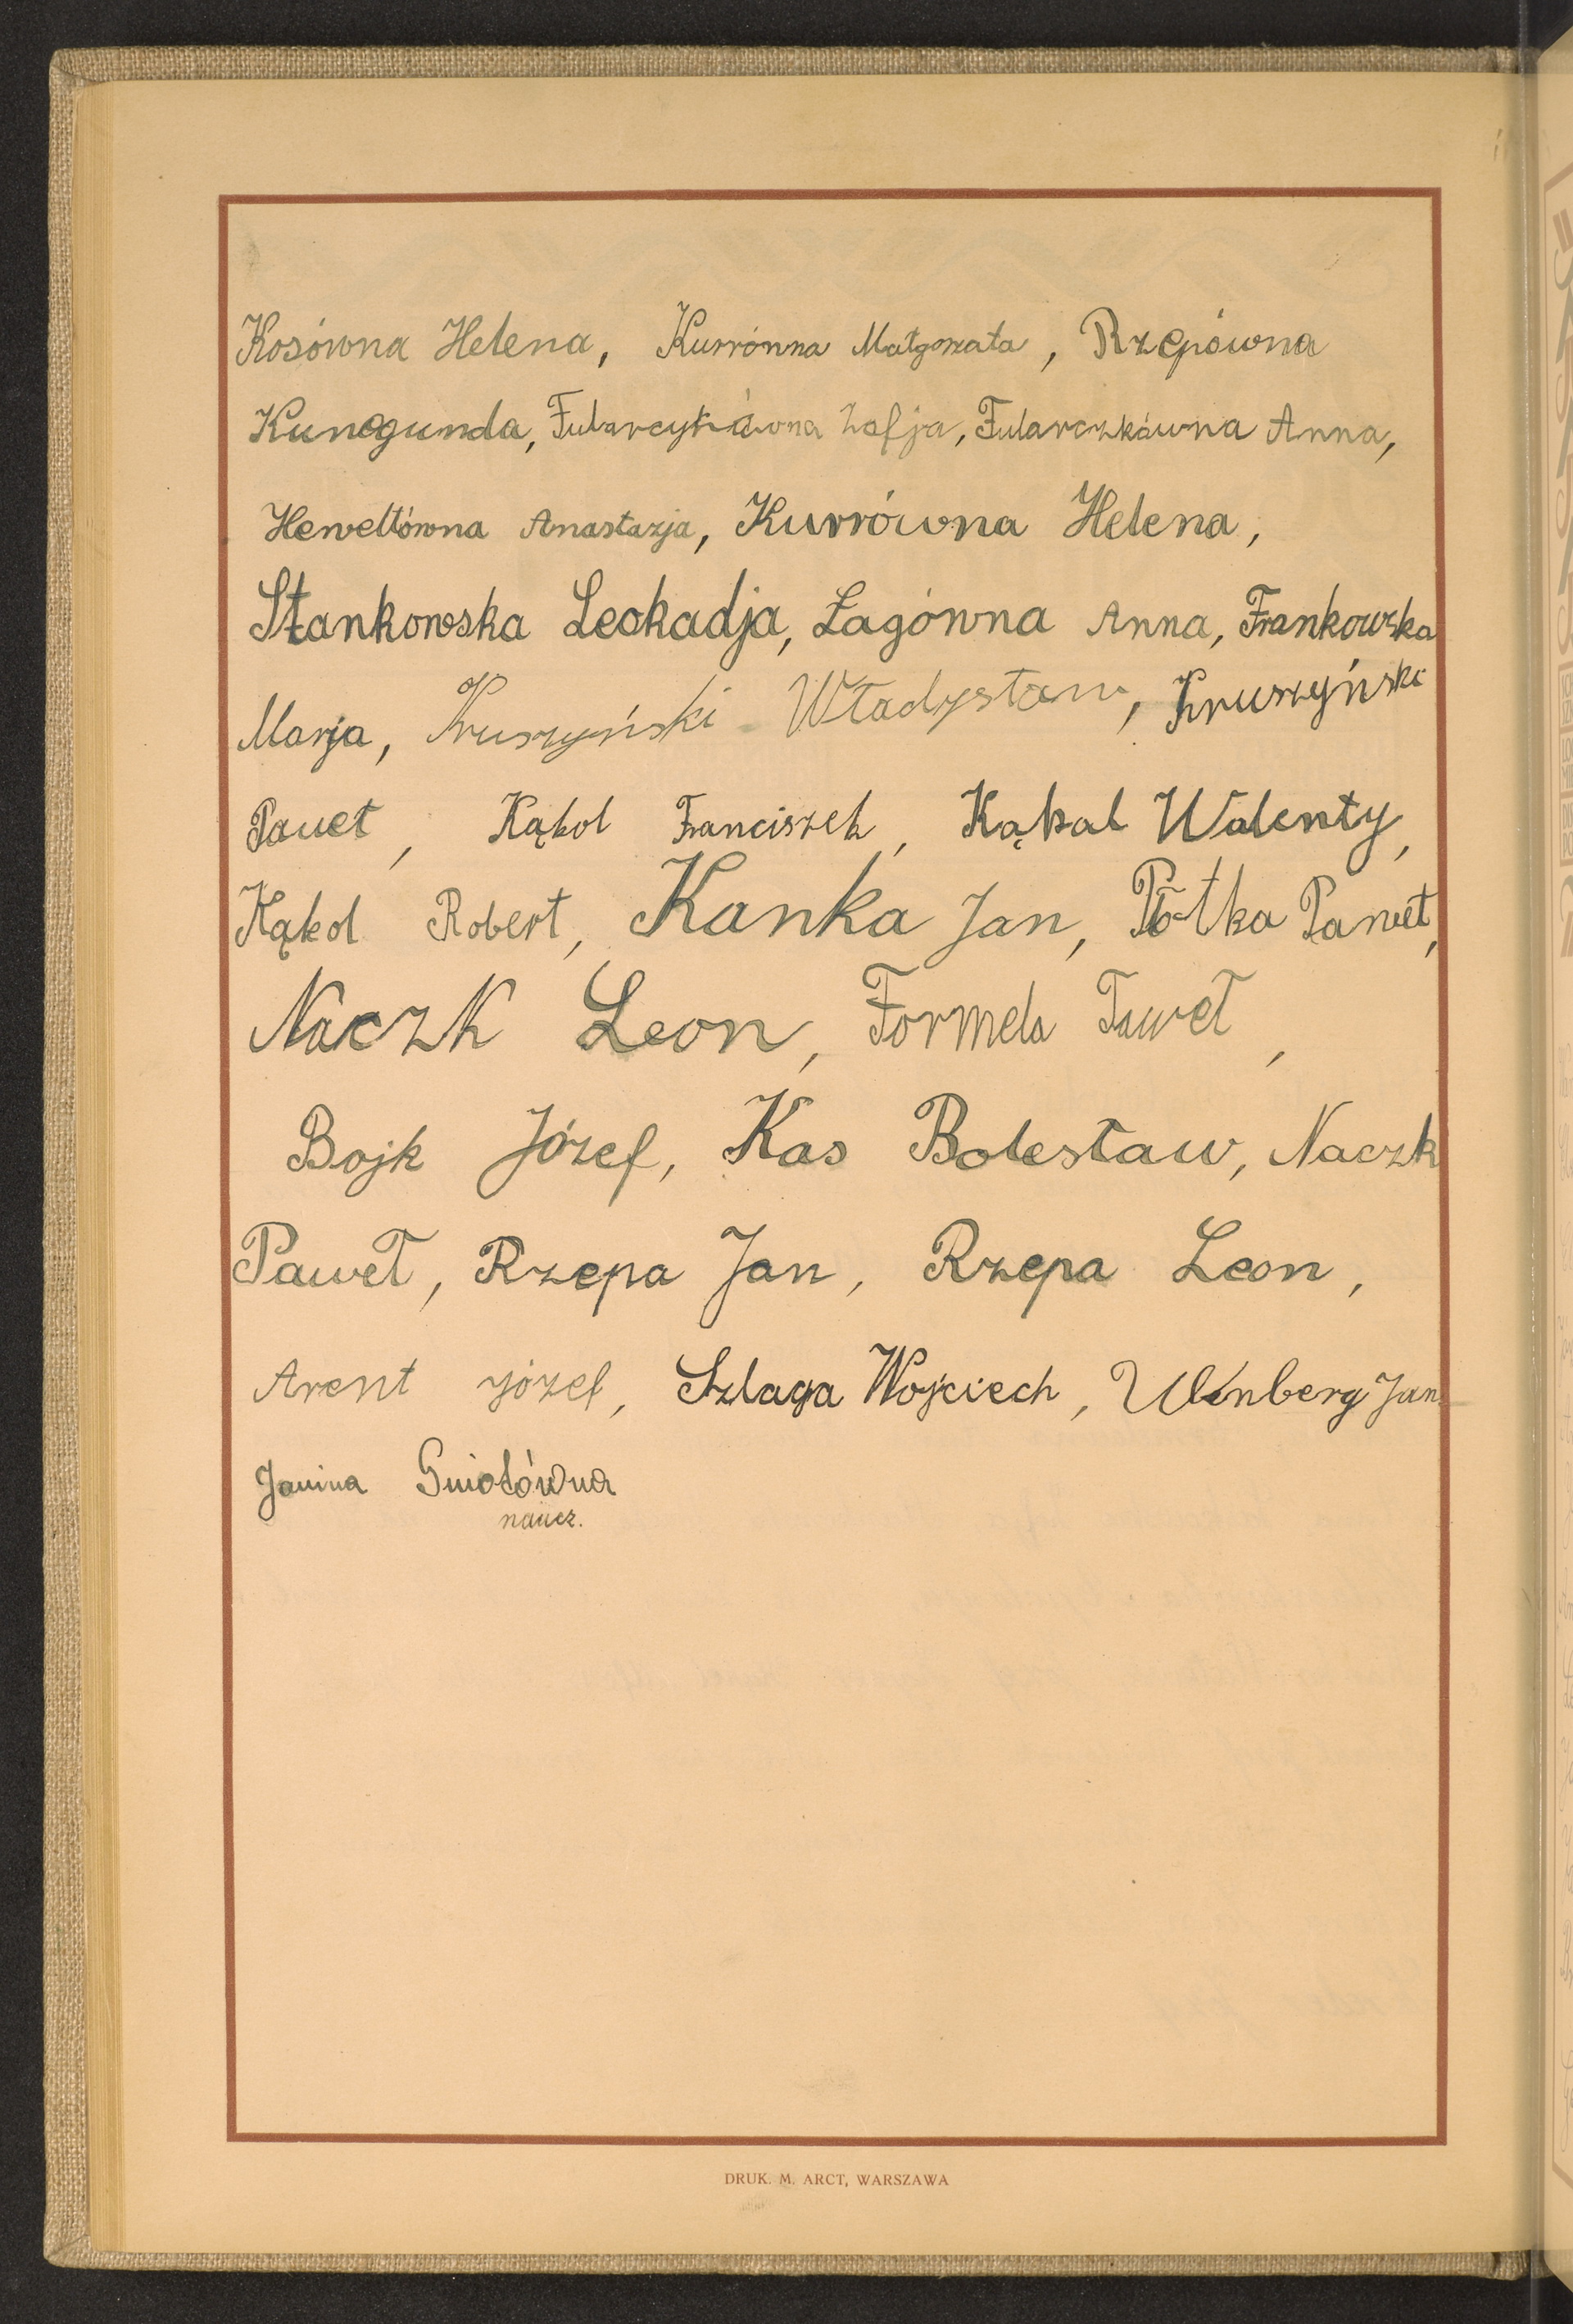 Kosówna Helena, Kurrówna Małgorzata, Rzepówna
Kunegunda, Fularcykówna Zofja, Fularczkówna Anna,
Heweltówna Anastazja, Kurrówna Helena,
Stankowska Leokadja, Łagówna Anna, Frankowska
Marja, Kruszyński Władysław, Kruszyński
Paweł, Kąkol Franciszek, Kąkal Walenty,
Kąkol Robert, Kanka Jan, Płotka Paweł,
Naczk Leon, Formela Paweł,
Bojk Józef, Kas Bolesław, Naczk
Paweł, Rzepa Jan, Rzepa Leon,
Arent Józef, Szlaga Wojciech, Ulenberg Jan
Janina Gniotówna
naucz.
DRUK. M. ARCT, WARSZAWA